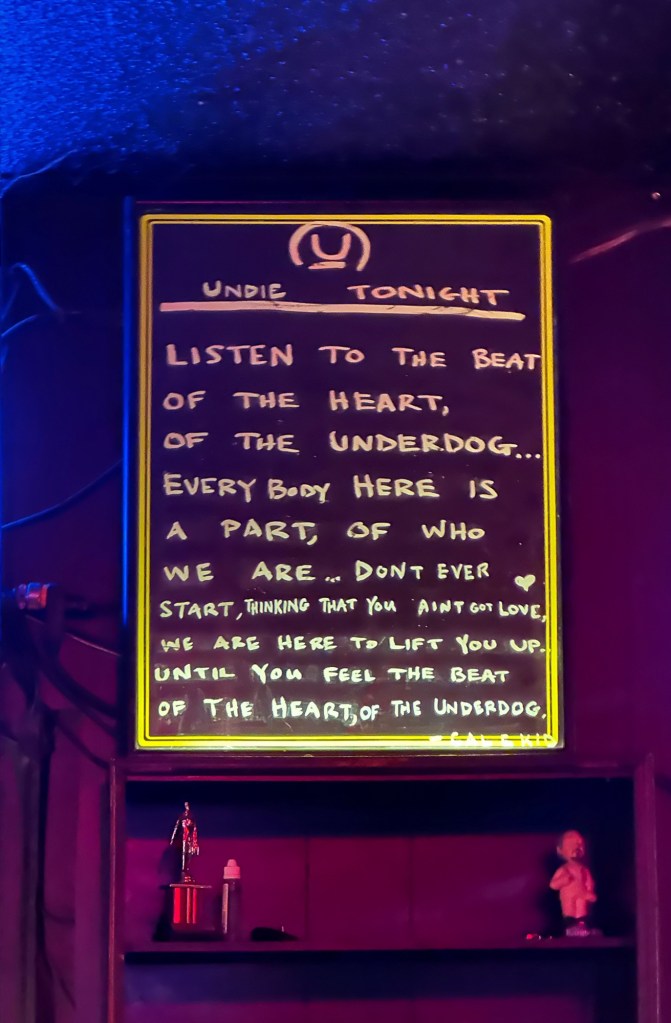 U
UNDIE TONIGHT
LISTEN TO THE BEAT
OF THE HEART,
OF THE UNDERDOG...
EVERYBODY HERE IS
A PART, OF WHO
WE ARE... DONT EVER
START, THINKING THAT YOU AINT GOT LOVE,
WE ARE HERE TO LIFT YOU UP.
UNTIL YOU FEEL THE BEAT
OF THE HEART, OF THE UNDERDOG.